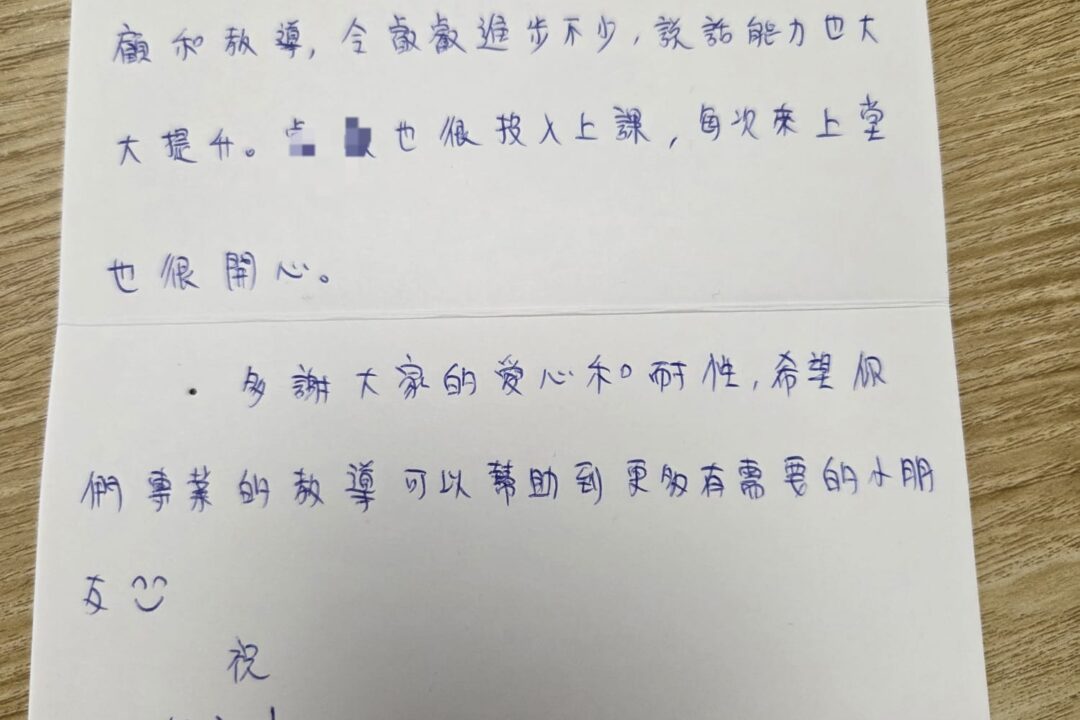 顧和教導,令叡叡進步不少,說話能力也大
大提升。也很投入上課,每次來上堂
也很開心。
多謝大家的愛心和耐性,希望你
們專業的教導可以幫助到更多有需要的小朋
友
祝